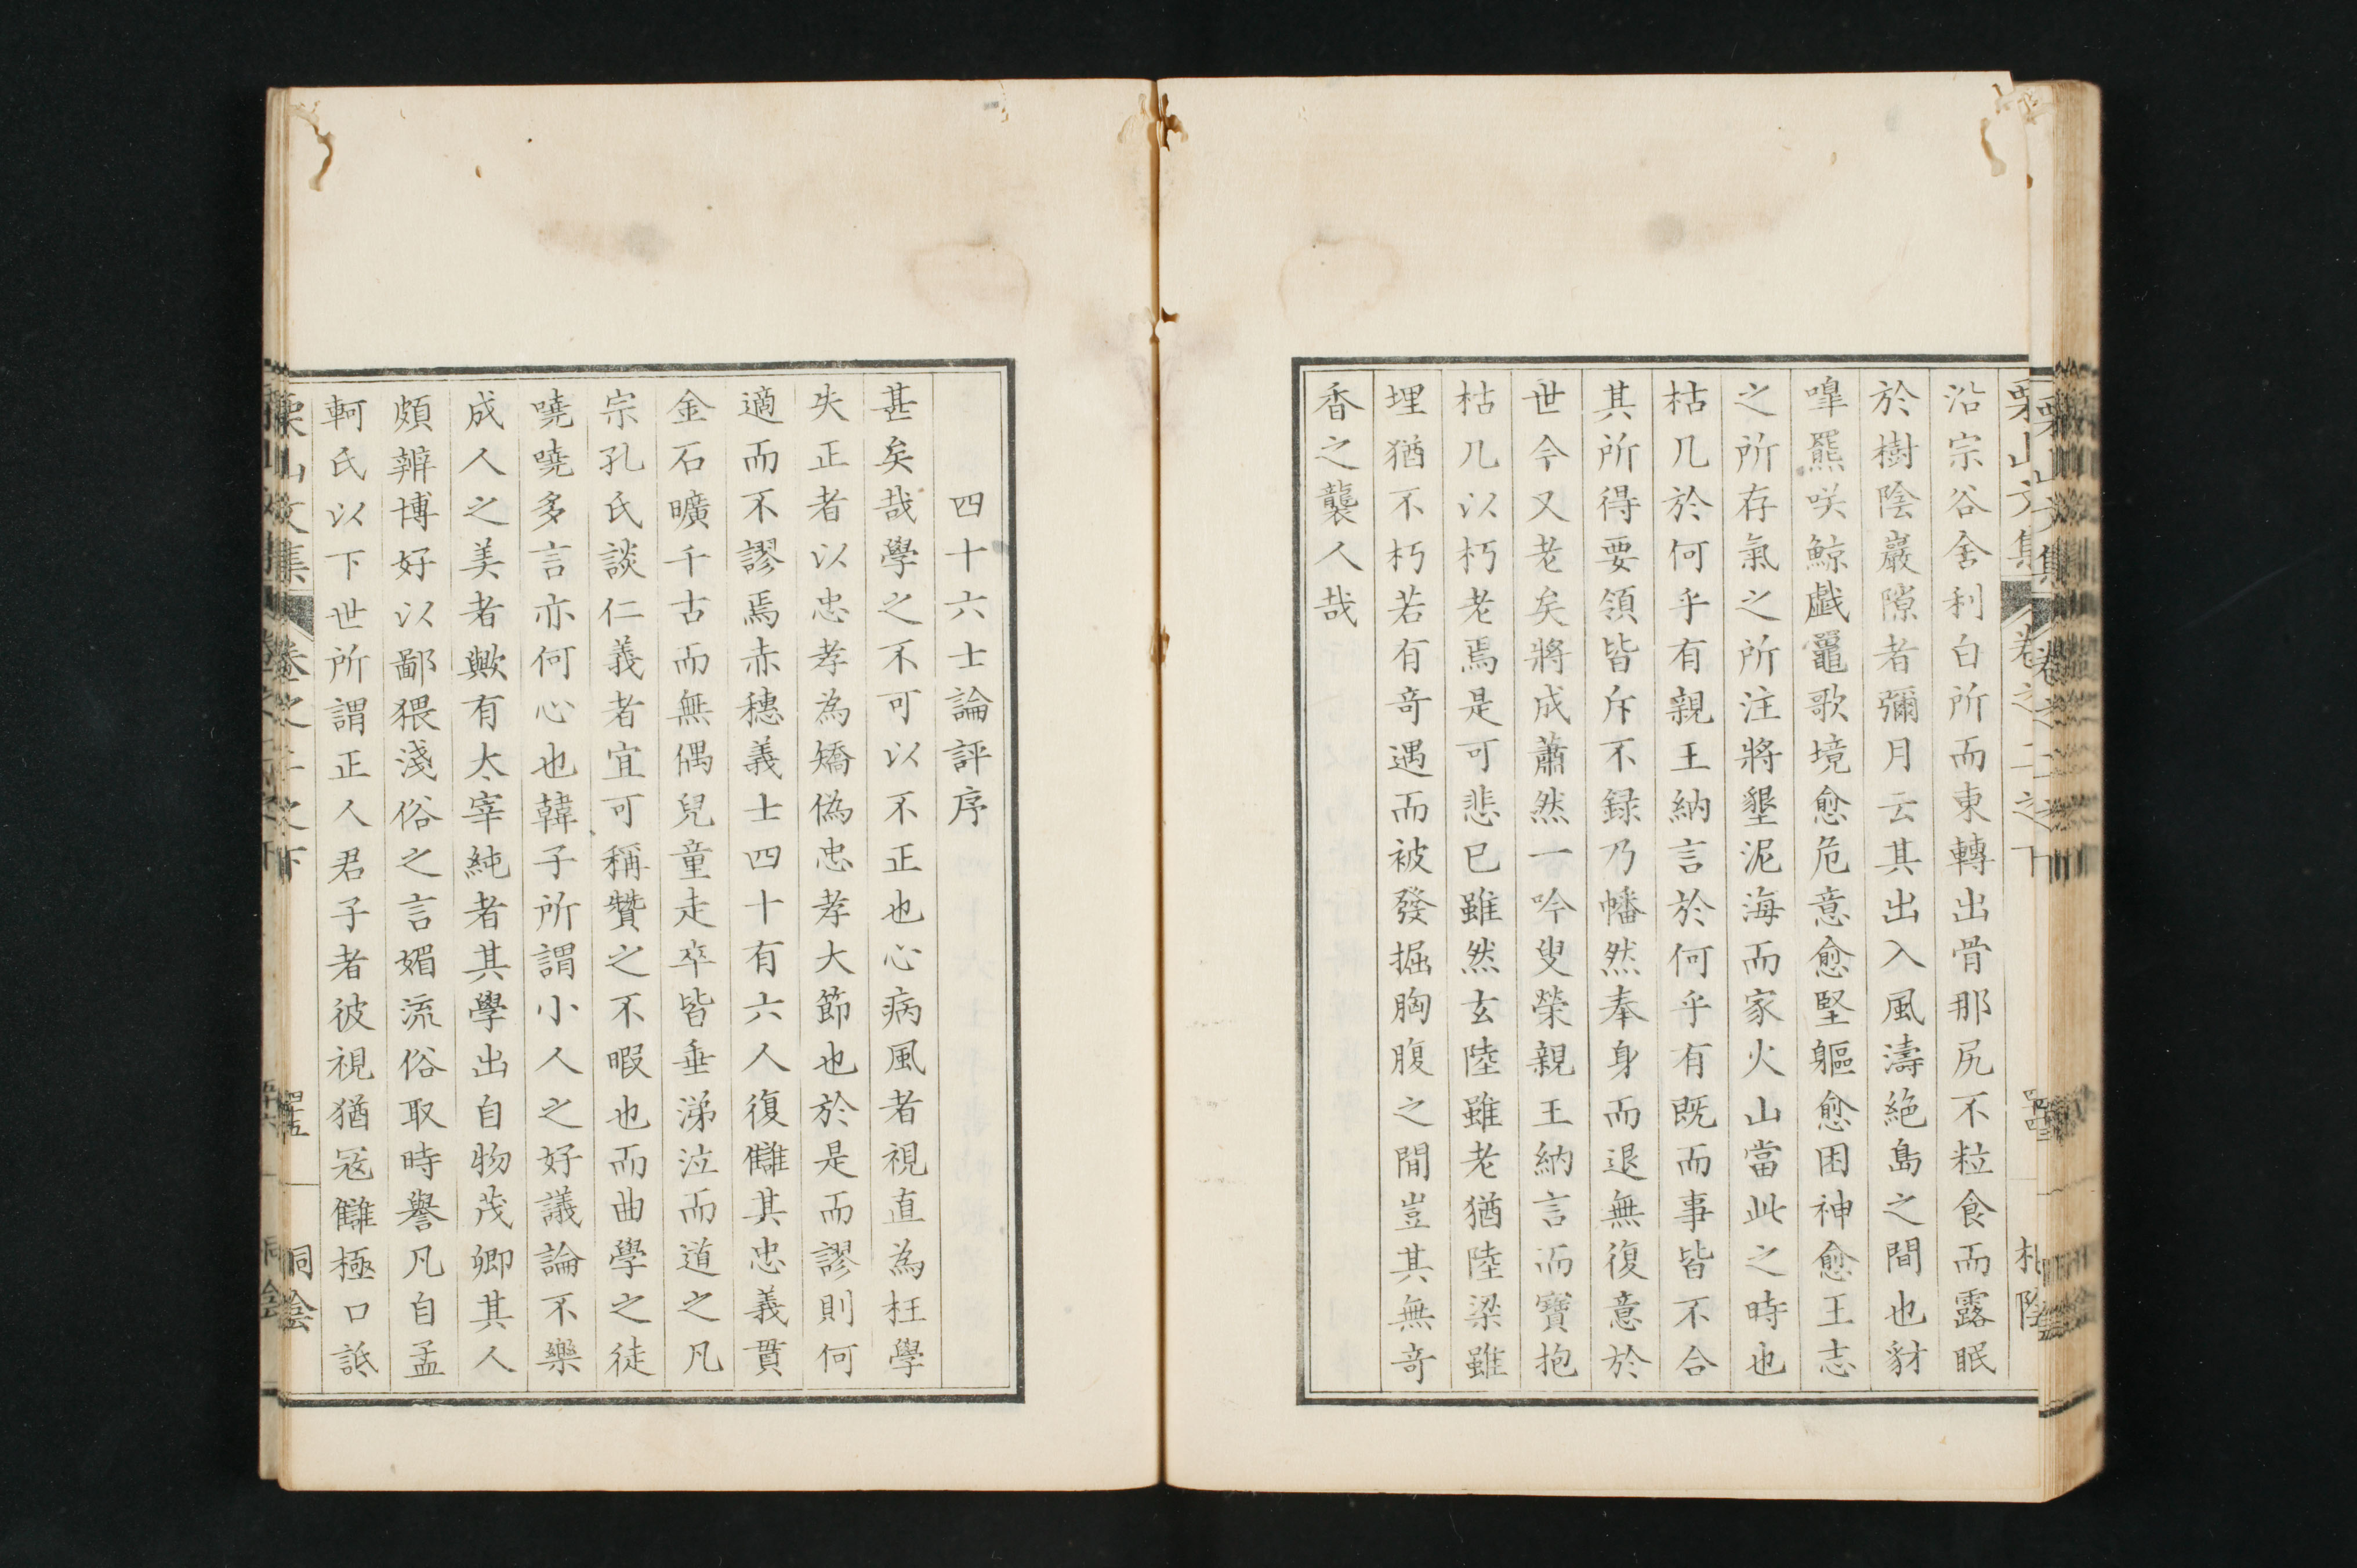 沿宗谷舍利白所而東轉出骨那尻不粒食而露眠
於樹陰巖隙者彌月云其出入風濤絶島之間也豺
嘷羆咲鯨戯鼉歌境愈危意愈堅軀愈困神愈王志
之所存氣之所注將墾泥海而家火山當此之時也
枯几於何乎有親王納言於何乎有既而事皆不合
其所得要領皆斥不録乃幡然奉身而退無復意於
世今又老矣將成蕭然一吟叟榮親王納言而寶抱
枯几以朽老焉是可悲已雖然玄陸雖老猶陸梁雖
埋猶不朽若有奇遇而被發掘胸腹之間豈其無奇
香之襲人哉
四十六士論評序
甚矣哉學之不可以不正也心病風者視直為枉學
失正者以忠孝為矯偽忠孝大節也於是而謬則何
適而不謬焉赤穗義士四十有六人復讎其忠義貫
金石曠千古而無偶兒童走卒皆垂涕泣而道之凡
宗孔氏談仁義者宜可稱贊之不暇也而曲學之徒
嘵嘵多言亦何心也韓子所謂小人之好議論不樂
成人之美者歟有太宰純者其學出自物茂卿其人
頗辨博好以鄙猥淺俗之言媚流俗取時譽凡自孟
軻氏以下世所謂正人君子者彼視猶寇讎極口詆
栗山文集 卷之二之下